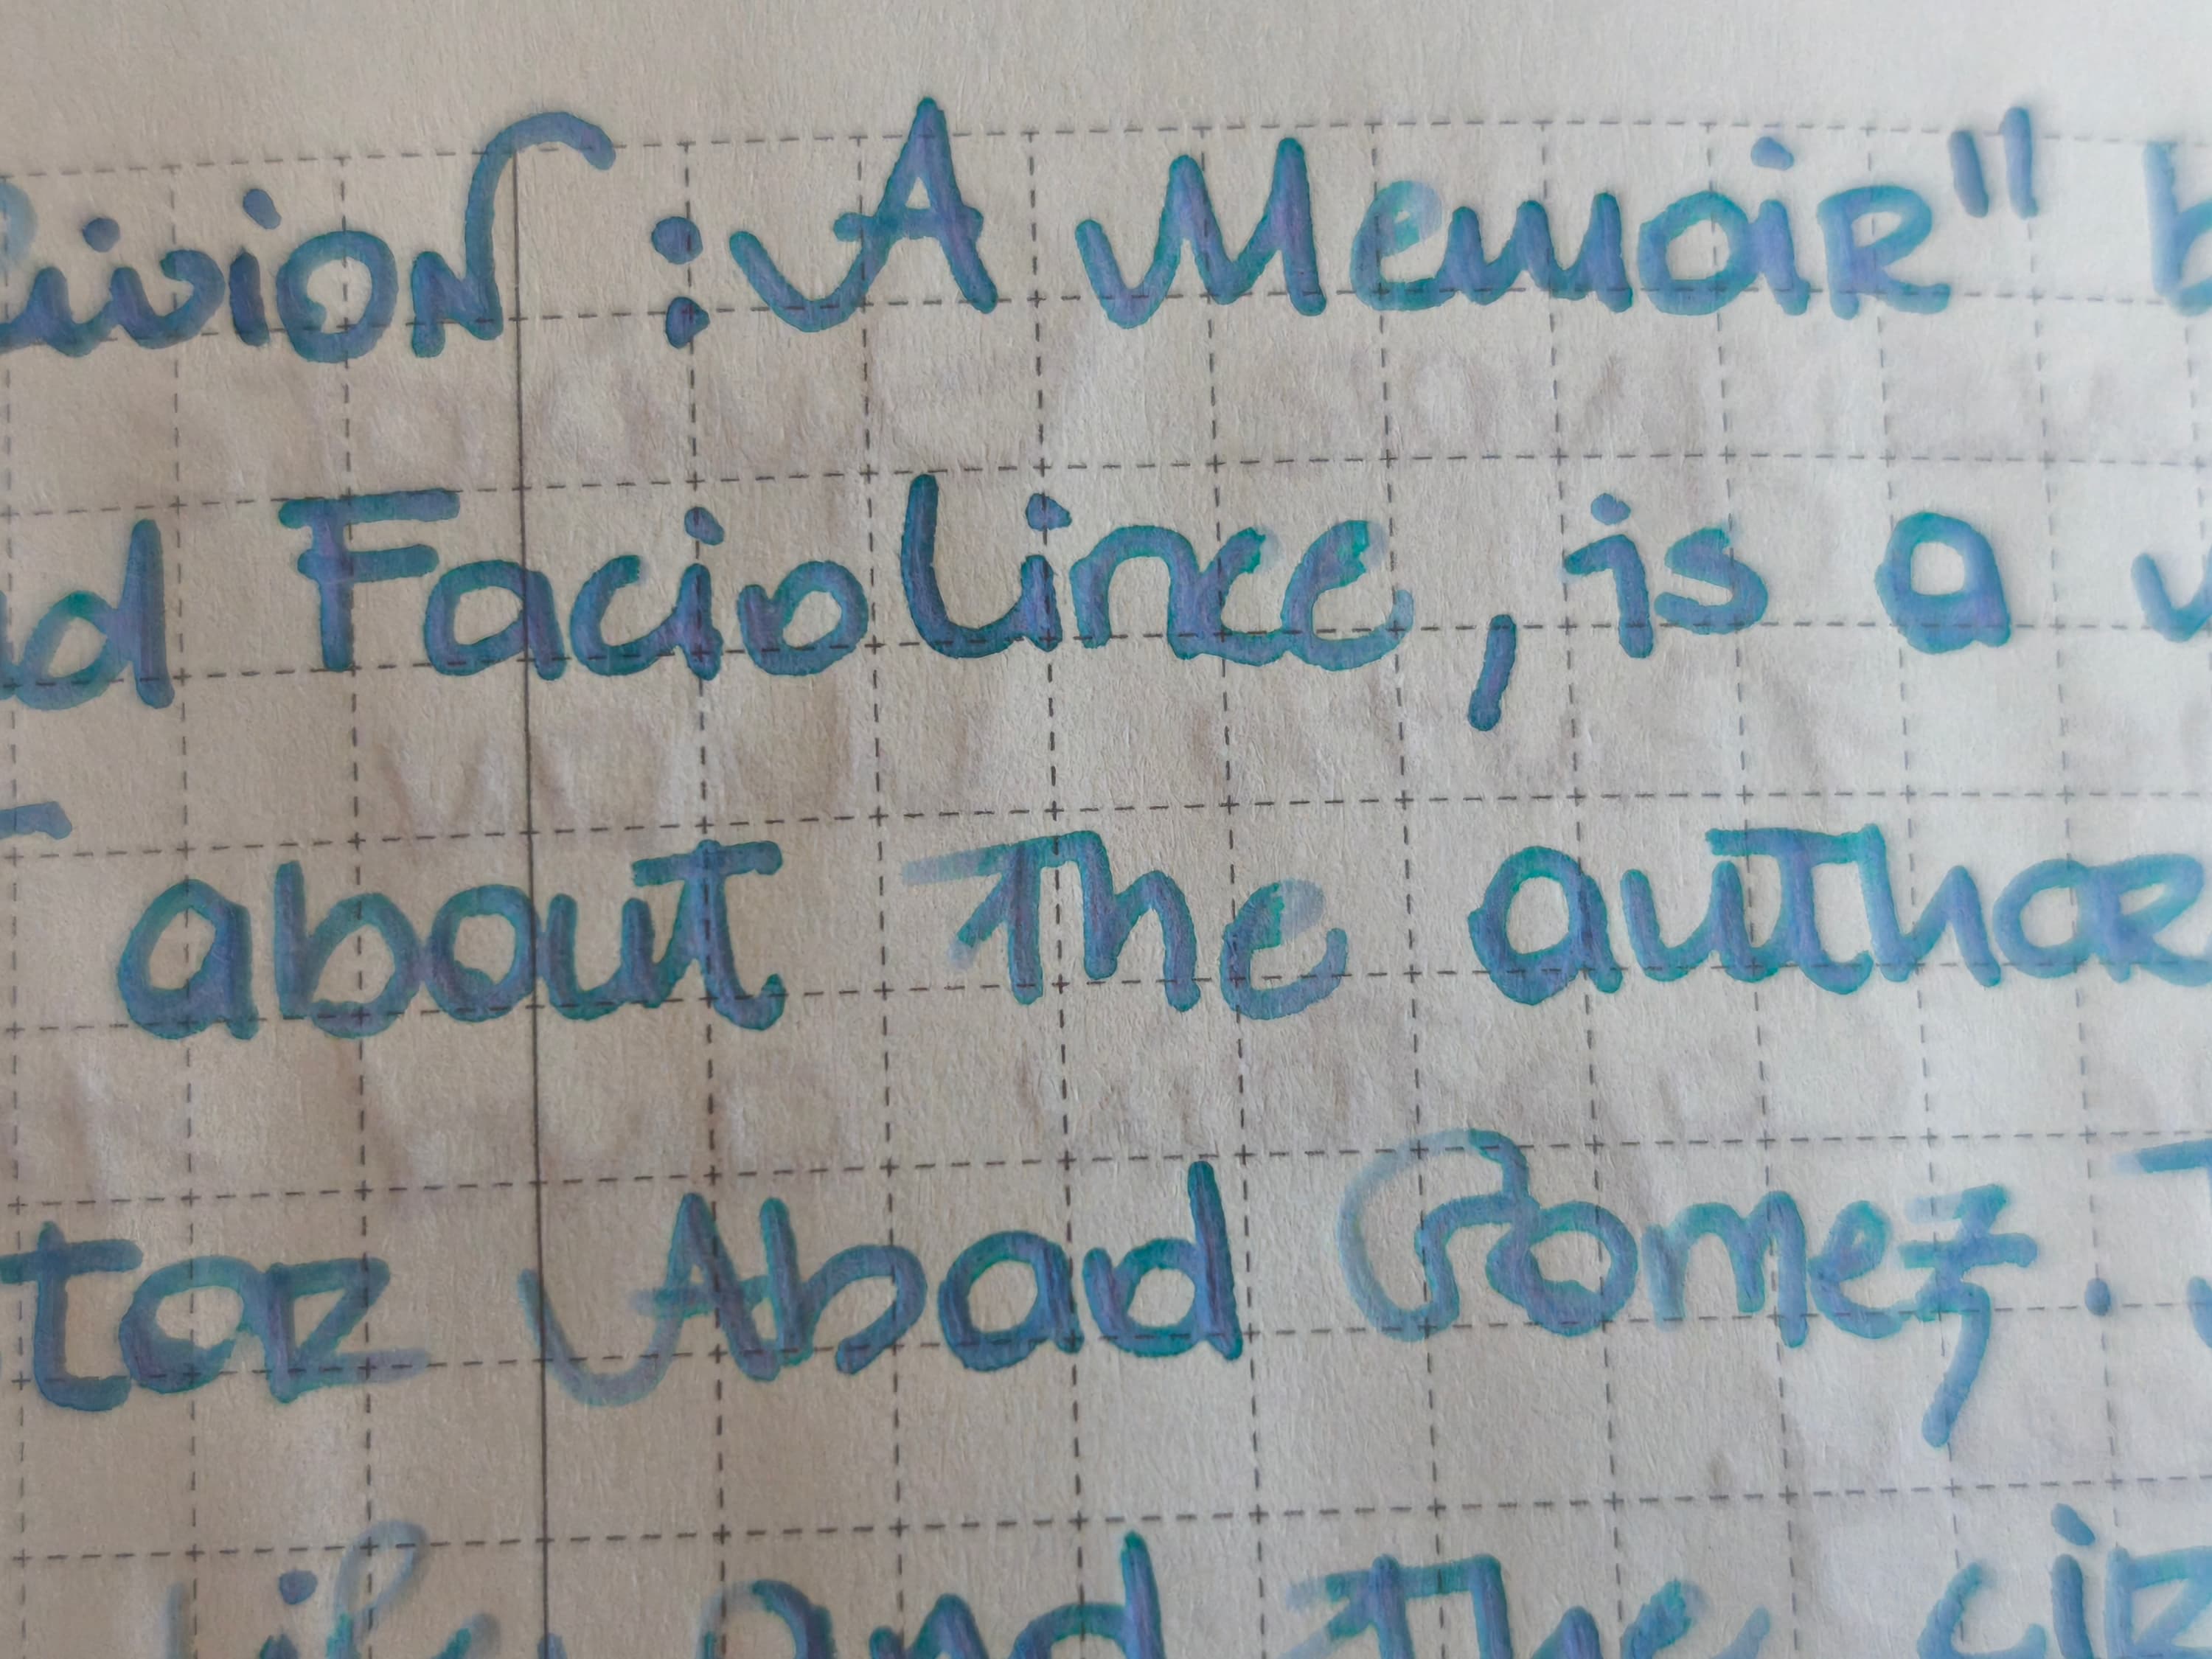 livion : A Memoir" b
ad Faciolince, is a
about the author
tor Abad Gomez.
life and the cir